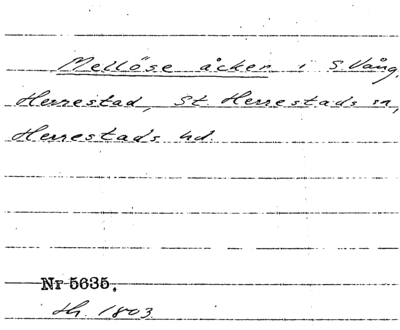 Mellöse åcken i S Vång,
Herrestad, St Herrestads sn,
Herrestads hd.
Nr 5635.
th. 1803